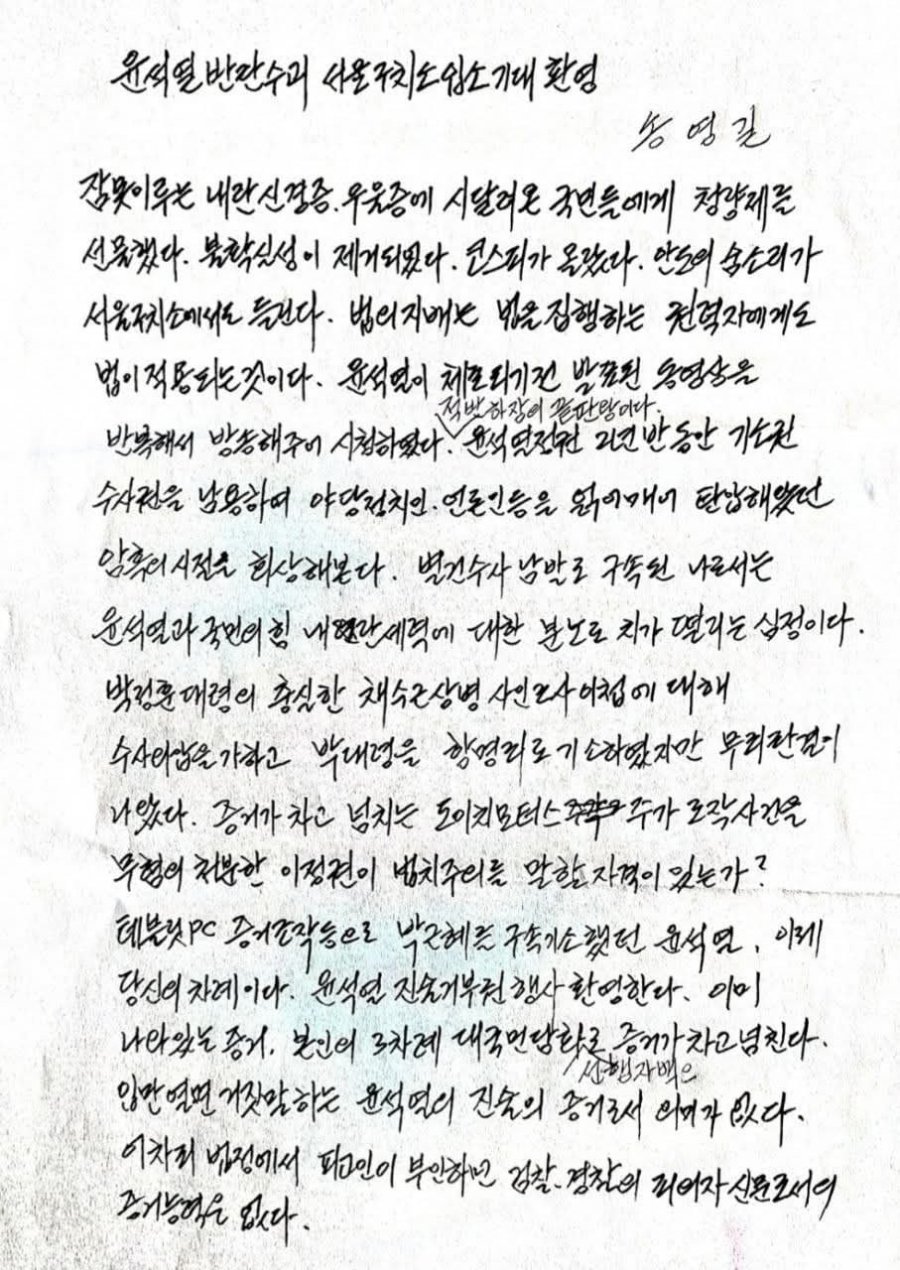 윤석열 반란수괴 서울구치소 입소 기대 환영
송영길
잠 못 이루는 내란신경증. 우울증에 시달려온 국민들에게 청량제를
선물했다. 불확실성이 제거되었다. 코스피가 올랐다. 안도의 숨소리가
서울구치소에서도 들린다. 법의 지배는 법을 집행하는 권력자에게도
법이 적용되는 것이다. 윤석열이 체포되기전 발표된 동영상을
적반하장의 끝판왕이다.
반복해서 방송해주어 시청하였다. 윤석열정권 2년 반 동안 기소권
수사권을 남용하여 야당정치인. 언론인등을 얽어매어 탄압해왔던
암흑의 시절을 회상해본다. 별건수사 남발로 구속된 나로서는
윤석열과 국민의힘 내란세력에 대한 분노로 치가 떨리는 심정이다.
박정훈 대령의 충실한 채수근상병 사인조사 이첩에 대해
수사외압을 가하고 박대령을 항명죄로 기소하였지만 무죄판결이
나왔다. 증거가 차고 넘치는 도이치모터스 주가조작사건을
무혐의 처분한 이정권이 법치주의를 말할 자격이 있는가?
테블릿PC 증거조작등으로 박근혜를 구속기소했던 윤석열, 이제
당신의 차례이다. 윤석열 진술거부권 행사 환영한다. 이미
나와있는 증거. 본인의 3차례 대국민담화로 증거가 차고 넘친다.
선행자백은
입만 열면 거짓말하는 윤석열의 진술의 증거로서 의미가 없다.
어차피 법정에서 피고인이 부인하면 검찰. 경찰의 피의자신문조서의
증거능력은 없다.